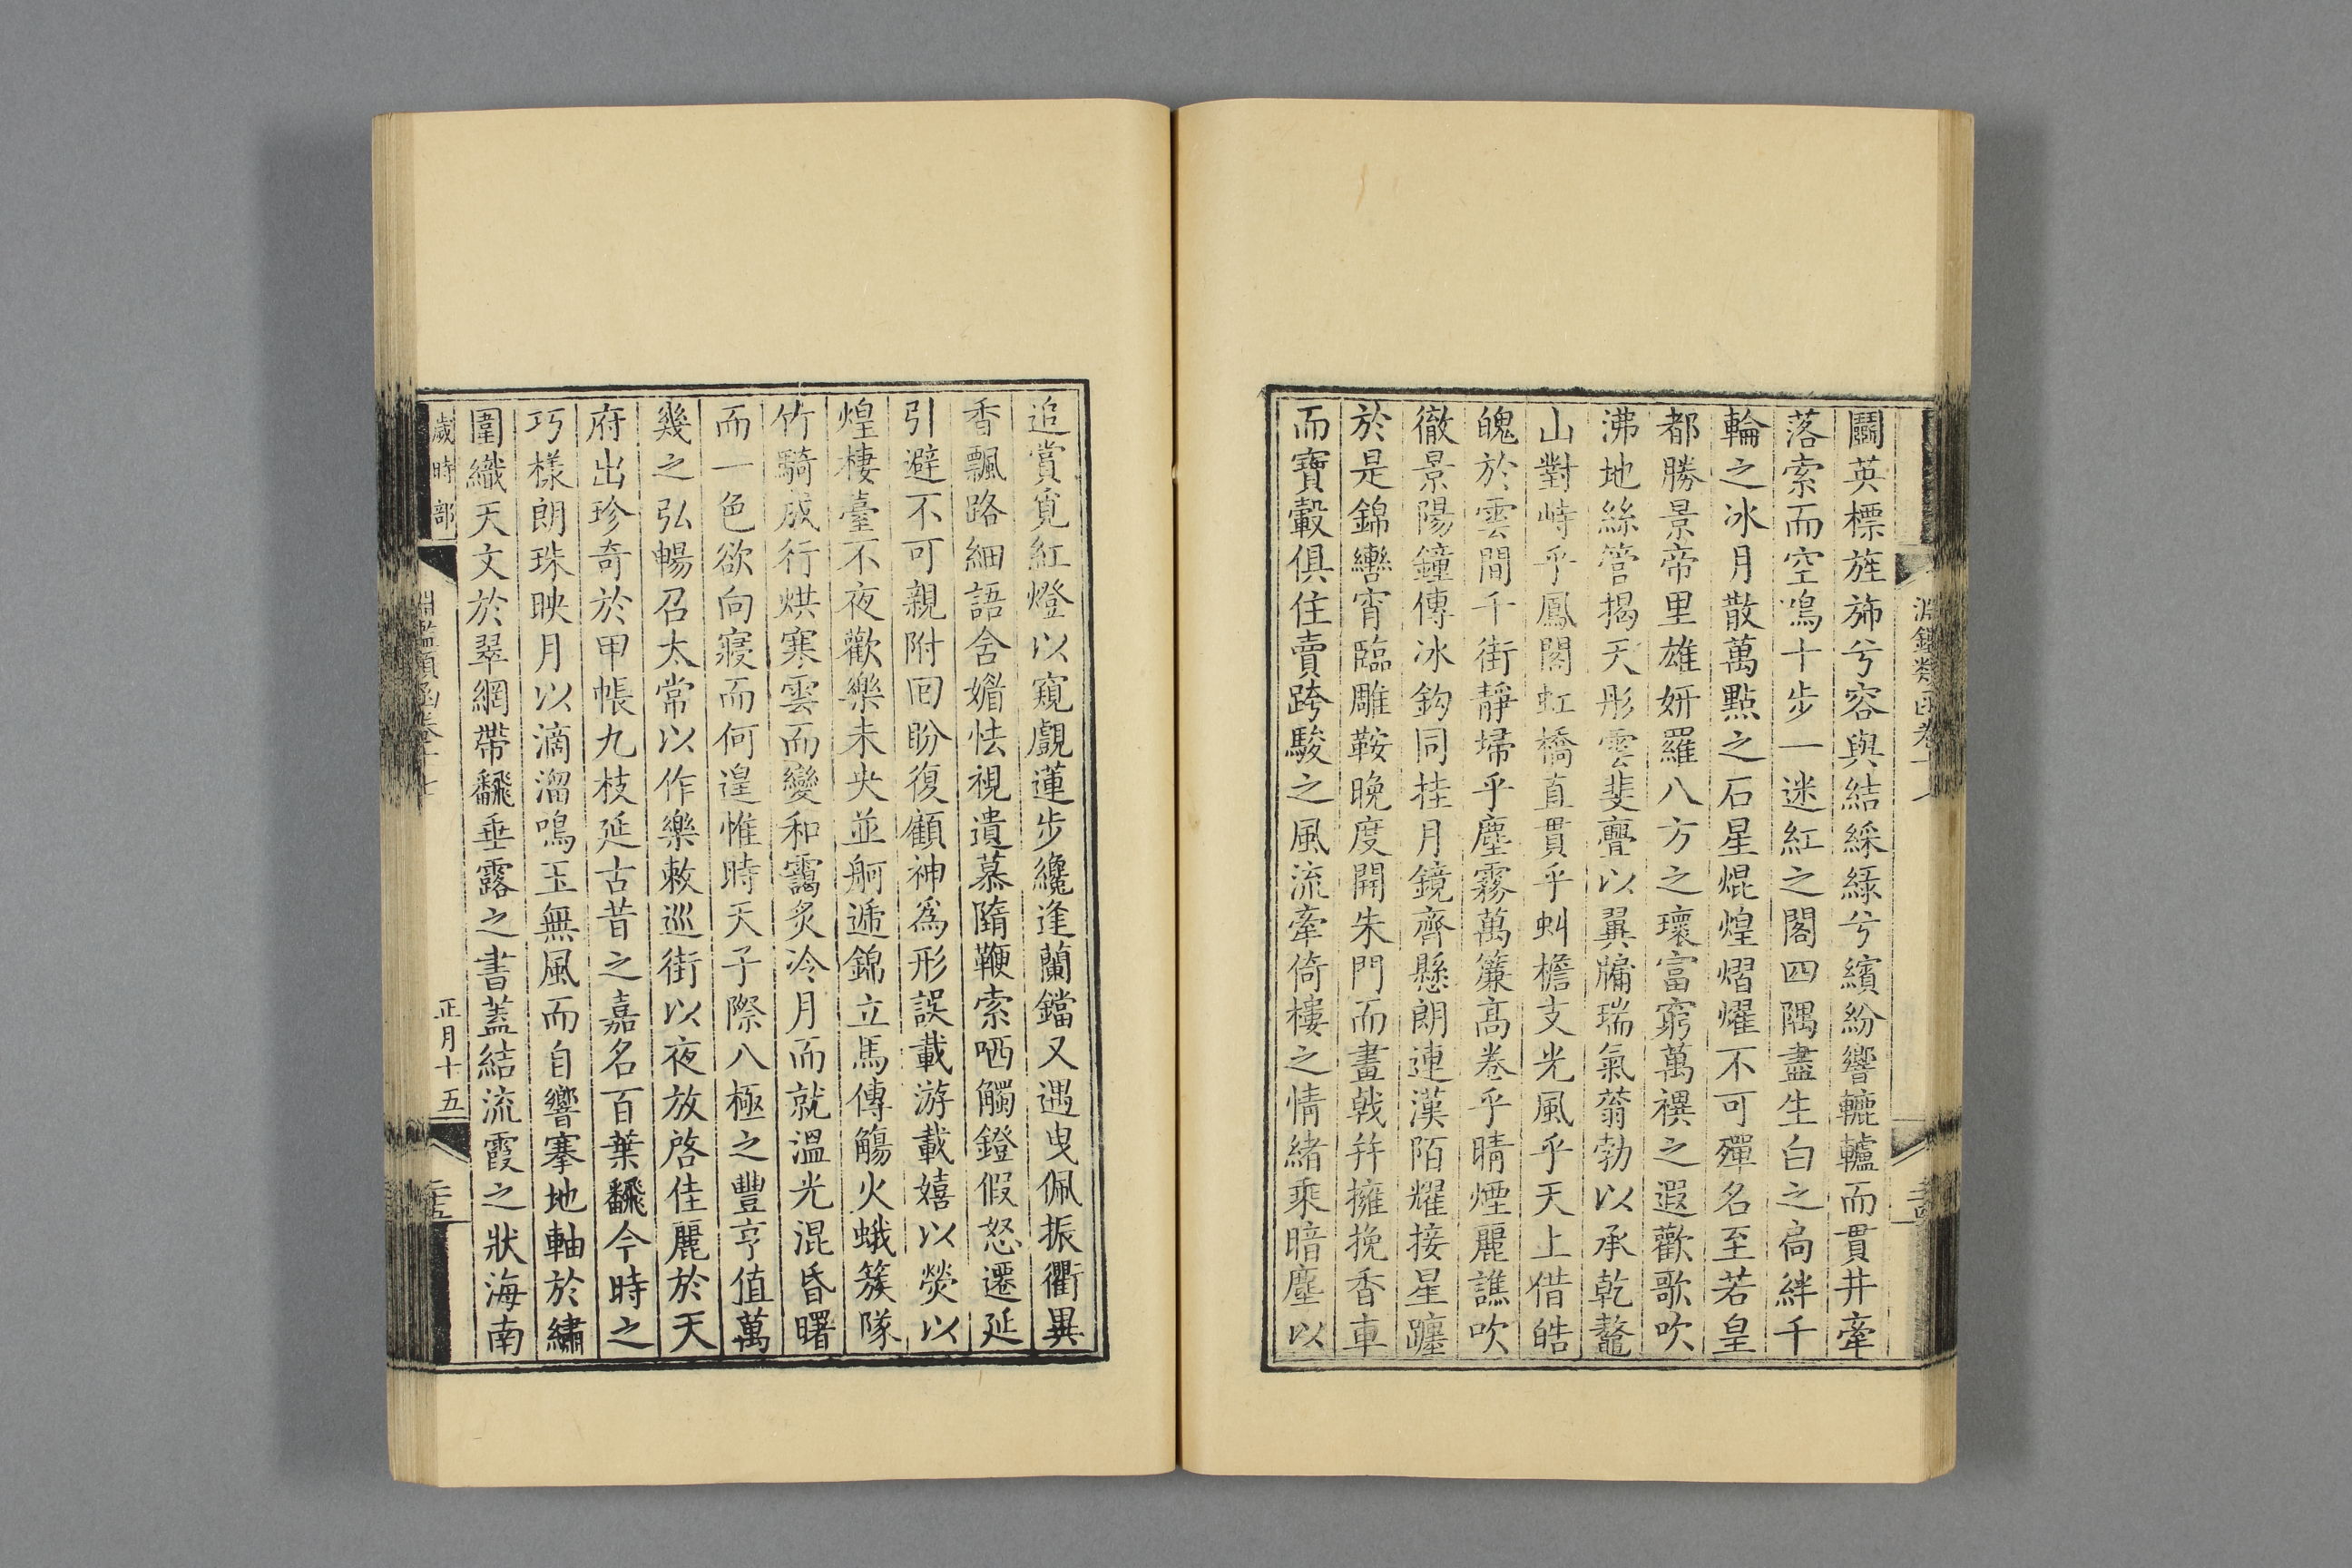 淵鑑類函卷十
鬬英標旌斾兮容與結綵綠兮繽紛響轆轤而貫井牽
落索而空鳴十步一迷紅之閣四隅盡生白之扃絆千
輪之冰月散萬點之石星焜煌熠燿不可殫名至若皇
都勝景帝里雄妍羅八方之瓌富窮萬禩之遐歡歌吹
沸地絲管揭天彤雲斐亹以翼牖瑞氣蓊勃以承乾鼇
山對峙乎鳳閣虹橋直貫乎虯檐支光風乎天上借皓
魄於雲間千街靜埽乎塵霧萬簾高卷乎晴煙麗譙吹
徹景陽鐘傳冰鈎同挂月鏡齊懸朗連漢陌耀接星躔
於是錦轡宵臨雕鞍晚度開朱門而畫戟幷擁挽香車
而寶轂俱住賣跨駿之風流牽倚樓之情緒乘暗塵以
追賞覓紅燈以窺覰蓮步纔逢蘭鐺又遇曳佩振衢異
香飄路細語含㜗怯視遺慕隋鞭索哂觸鐙假怒遷延
引避不可親附囘盼復顧神爲形誤載游載嬉以熒以
煌棲臺不夜歡樂未央並舸遞錦立馬傳觴火蛾簇隊
竹騎成行烘寒雲而變和靄炙冷月而就溫光混昏曙
而一色欲向寢而何遑惟時天子際八極之豐亨值萬
幾之弘暢召太常以作樂敕巡街以夜放啓佳麗於天
府出珍奇於甲帳九枝延古昔之嘉名百葉飜今時之
巧樣朗珠映月以滴溜鳴玉無風而自響搴地軸於繡
圍織天文於翠網帶飜垂露之書蓋結流霞之狀海南
歲時部
正月十五
二十五